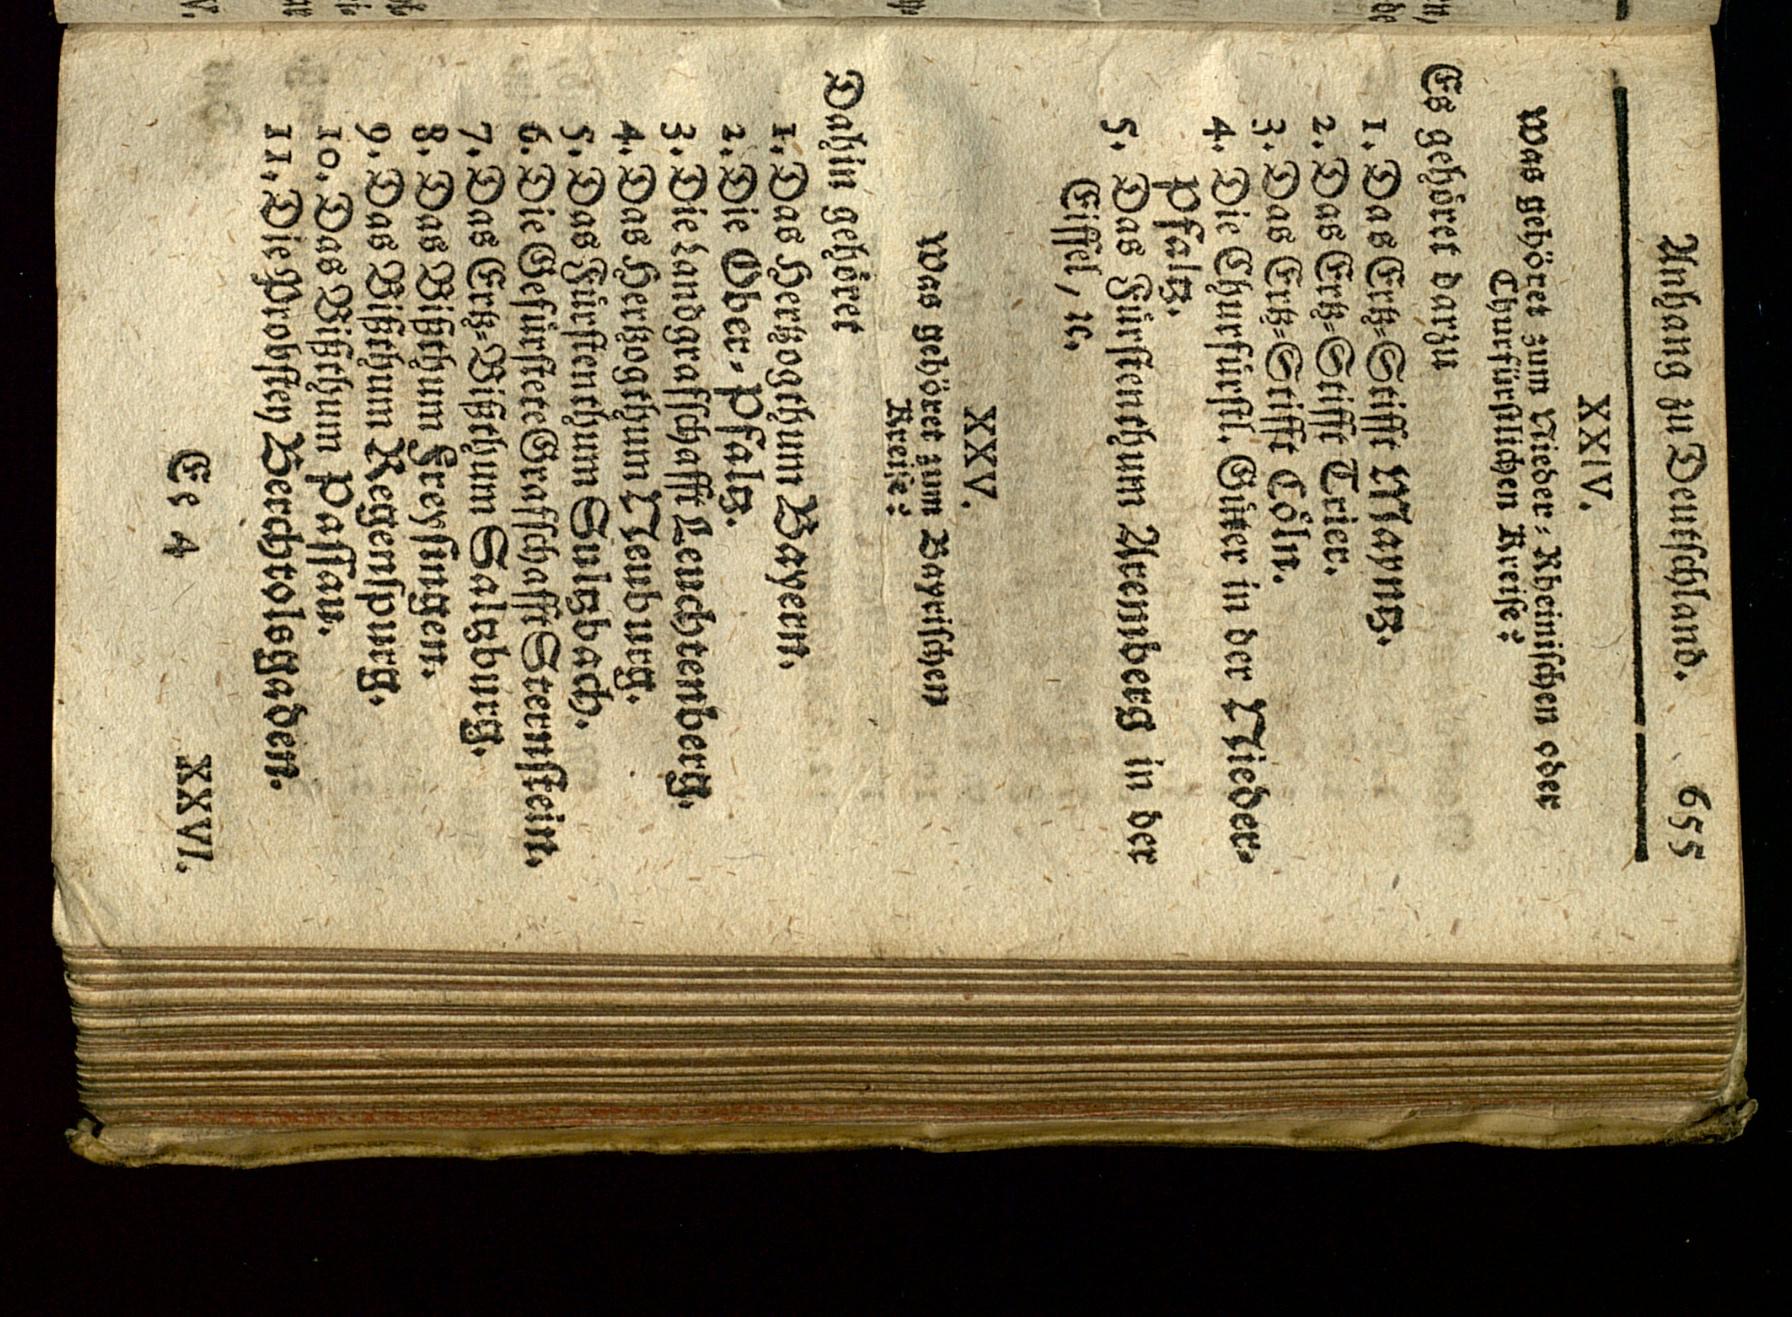 Anhang zu Deutschland. 655
XXIV.
Was gehöret zum Nieder-Rheinischen oder
Churfürstlichen Kreise?
Es gehöret darzu
1. Das Ertz-Stifft Mayntz.
2. Das Ertz-Stifft Trier.
3. Das Ertz-Stifft Cöln.
4. Die Churfürstl. Güter in der Nieder-
Pfaltz.
5. Das Fürstenthum Aremberg in der
Eiffel, ꝛc.
XXV.
Was gehöret zum Bayrischen
Kreise?
Dahin gehöret
1. Das Hertzogthum Bayern.
2. Die Ober-Pfaltz.
3. Die Landgrafschafft Leuchtenberg.
4. Das Hertzogthum Neuburg.
5. Das Fürstenthum Sultzbach.
6. Die Gefürstete Grafschafft Sternstein.
7. Das Ertz-Bißthum Saltzburg.
8. Das Bißthum Freysingen.
9. Das Bißthum Regenspurg.
10. Das Bißthum Passau.
11. Die Probstey Berchtolsgaden.
Ee 4 XXVI.